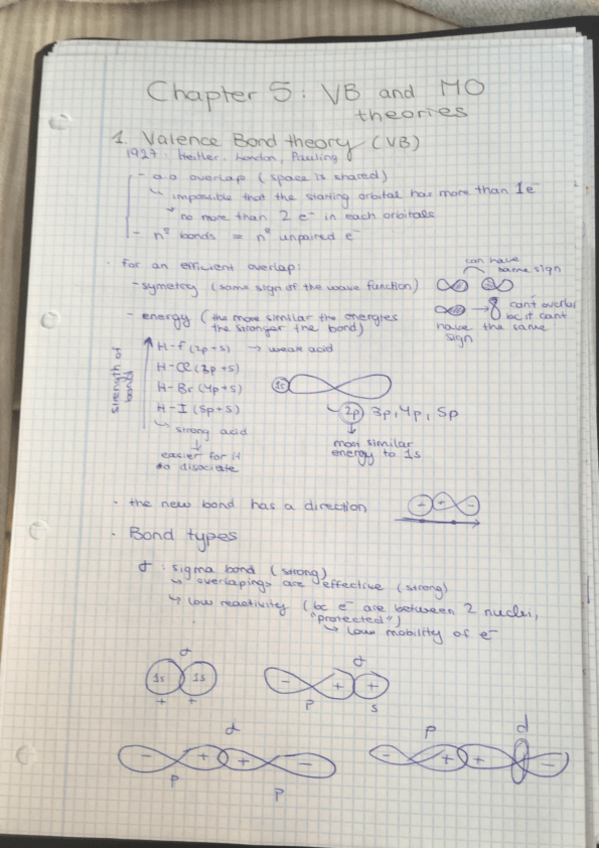 Chapter 5: VB and MO
theories
1. Valence Bond theory (VB)
1927: Heitler, London, Pauling
- a.o overlap (space is shared)
↳ impossible that the starting orbital has more than 1e⁻
↳ no more than 2 e⁻ in each orbitals
- nº bonds = nº unpaired e⁻
· for an efficient overlap:
can have
same sign
- symetry (same sign of the wave function)
- energy (the more similar the energies
the stronger the bond)
→ cant overlap
bc it cant
have the same
sign
strength of
bonds
H-F (2p+s) → weak acid
H-Cl (3p+s)
H-Br (4p+s)
H-I (5p+s)
↳ strong acid
↓
easier for H
to disociate
1s
↳ 2p, 3p, 4p, 5p
↓
most similar
energy to 1s
· the new bond has a direction
- + -
· Bond types
σ : sigma bond (strong)
↳ overlapings are effective (strong)
↳ low reactivity (bc e⁻ are between 2 nuclei,
"protected")
↳ low mobility of e⁻
σ
1s 1s
+ +
σ
- + +
p s
σ
- + + -
p p
p d
- + + -